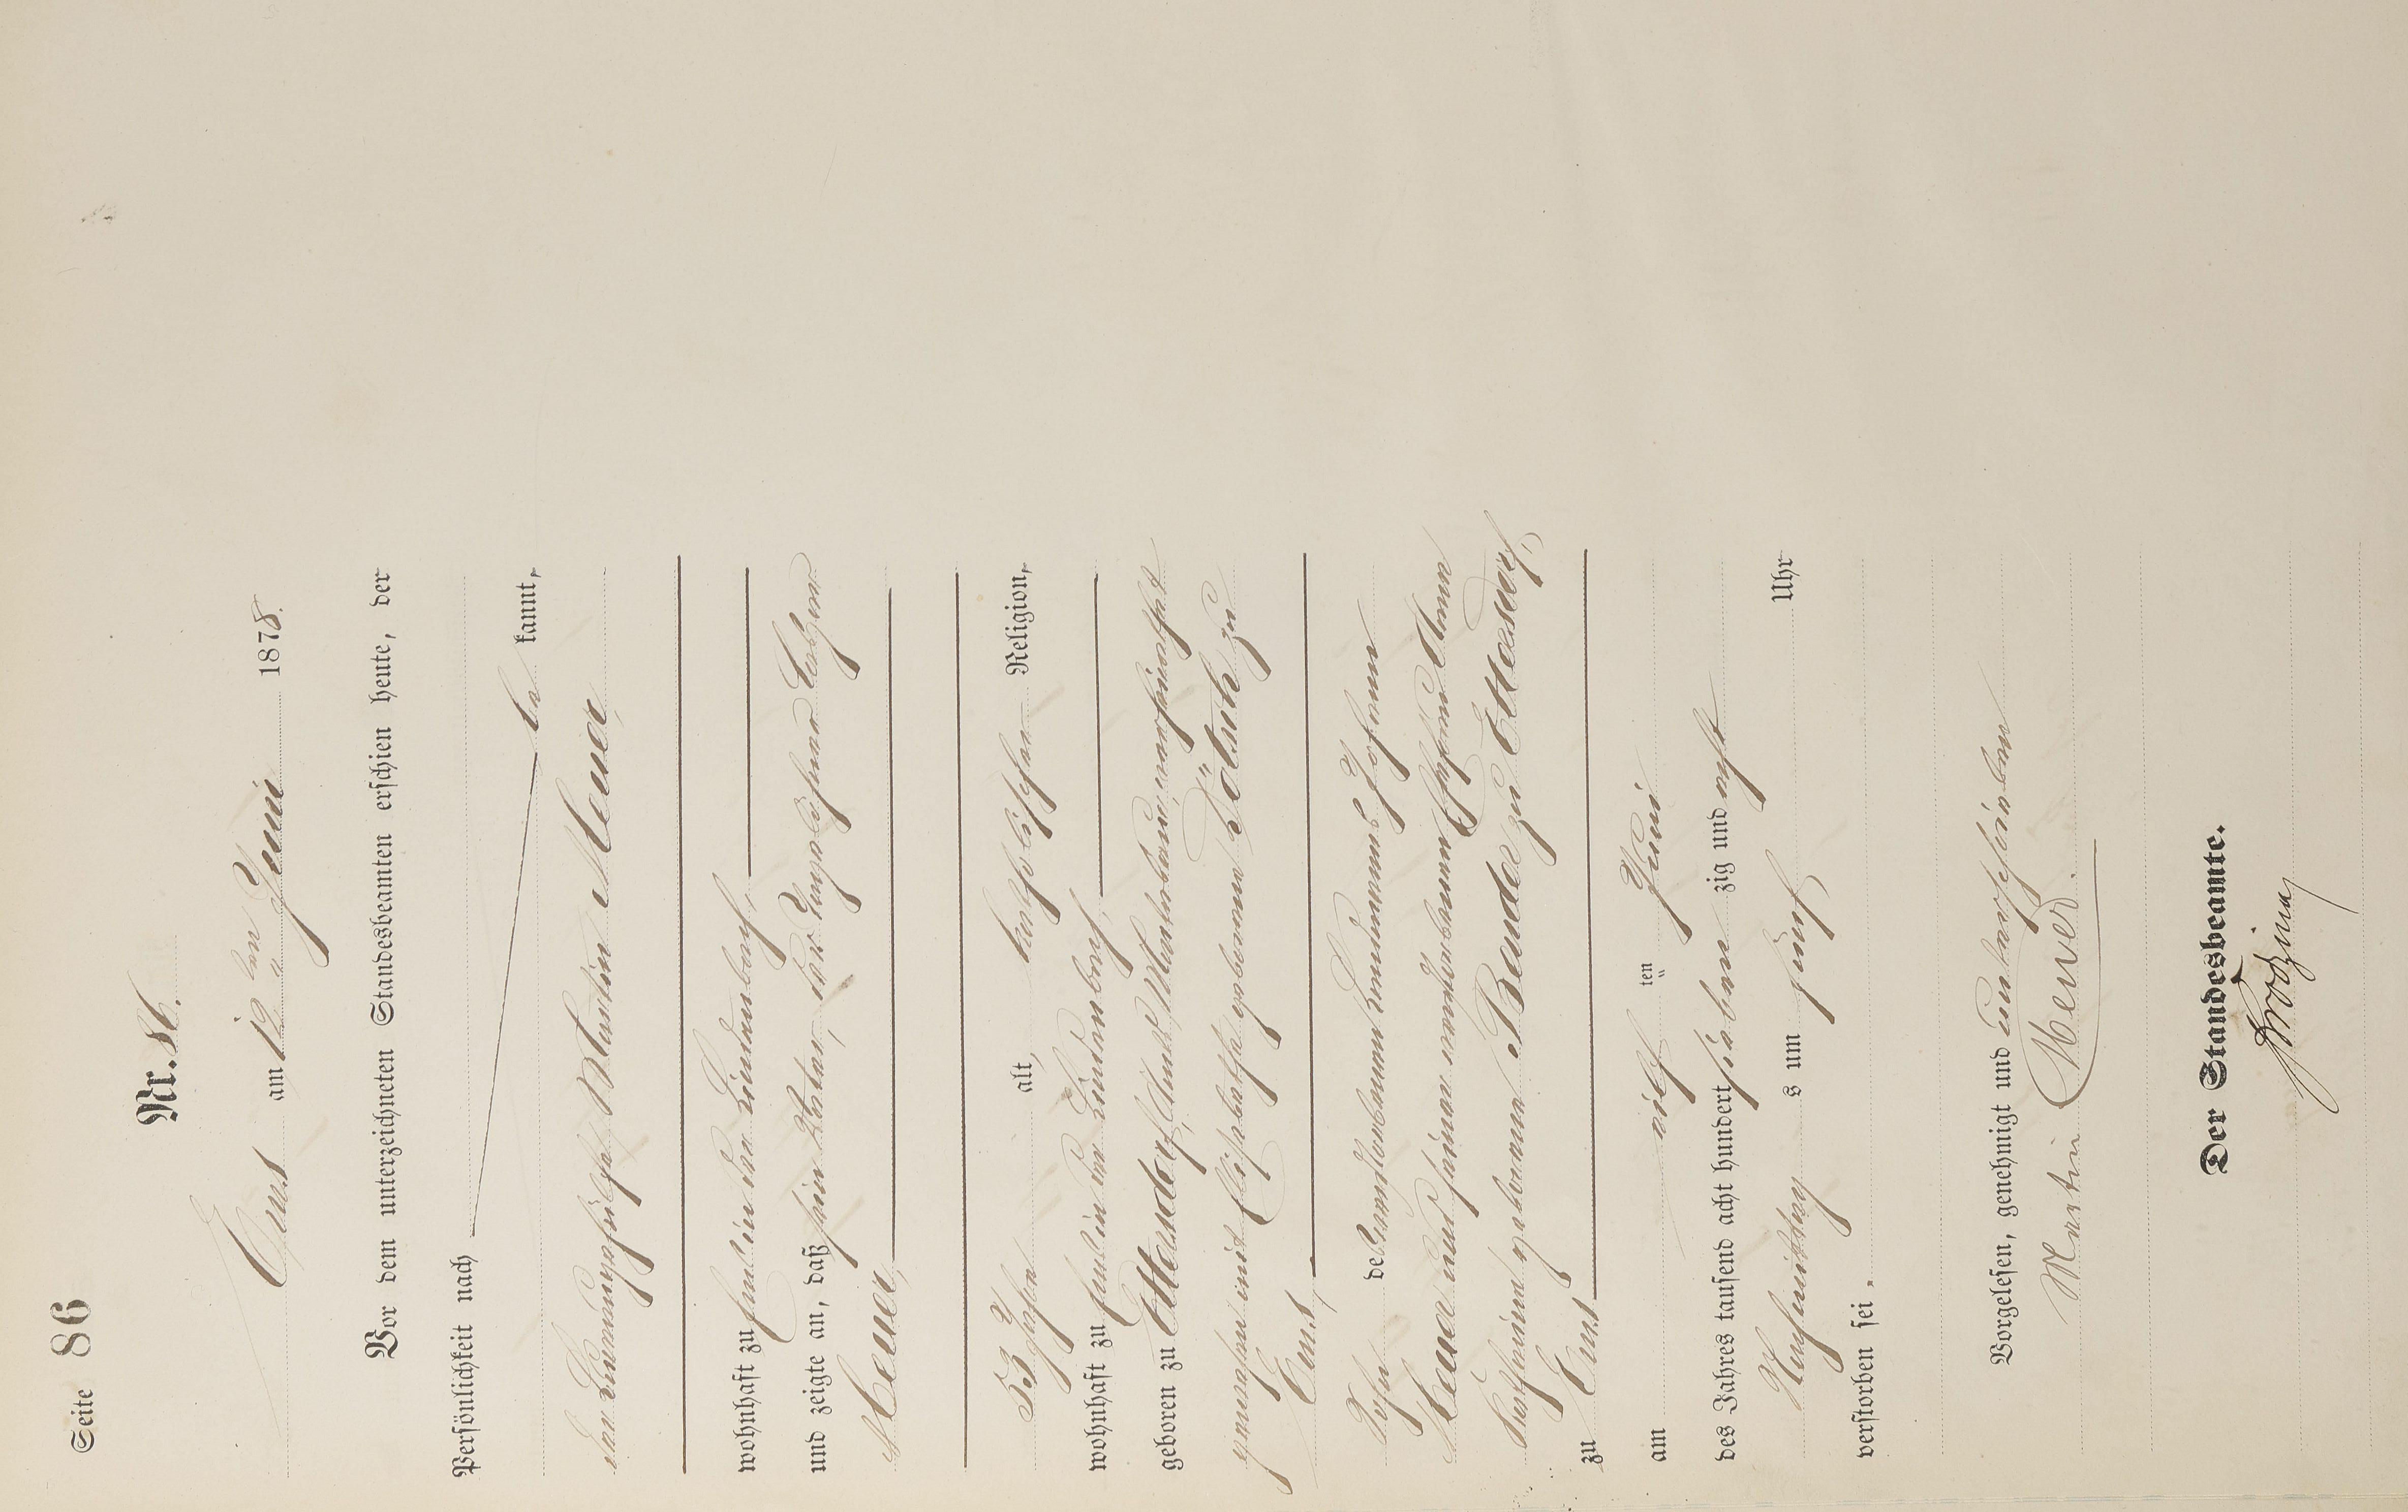 Seite 86
Nr. 86.
Ems am 12ten Juni 1878.
Vor dem unterzeichneten Standesbeamten erschien heute, der
Persönlichkeit nach
be kannt,
der Martin Meuer,
wohnhaft zu hierselbst in der Lindenbach,
und zeigte an, daß sein Vater, der
Meuer,
53 Jahre alt, katholischer Religion,
wohnhaft zu hierselbst in der Lindenbach,
geboren zu Ettersdorf, Amts Montabaur, verheirathet
gewesen mit Elisabetha geborenen Dötsch zu
Ems,
Sohn des verstorbenen Johann
Meuer und seiner verstorbenen Ehefrau Anna
Katharina geborenen Bender zu Ettersdorf,
zu Ems
am elf ten Juni
des Jahres tausend acht hundert sieben zig und acht
Nachmittag s um fünf Uhr
verstorben sei.
Vorgelesen, genehmigt und unterschrieben
Martin Meuer.
Der Standesbeamte.